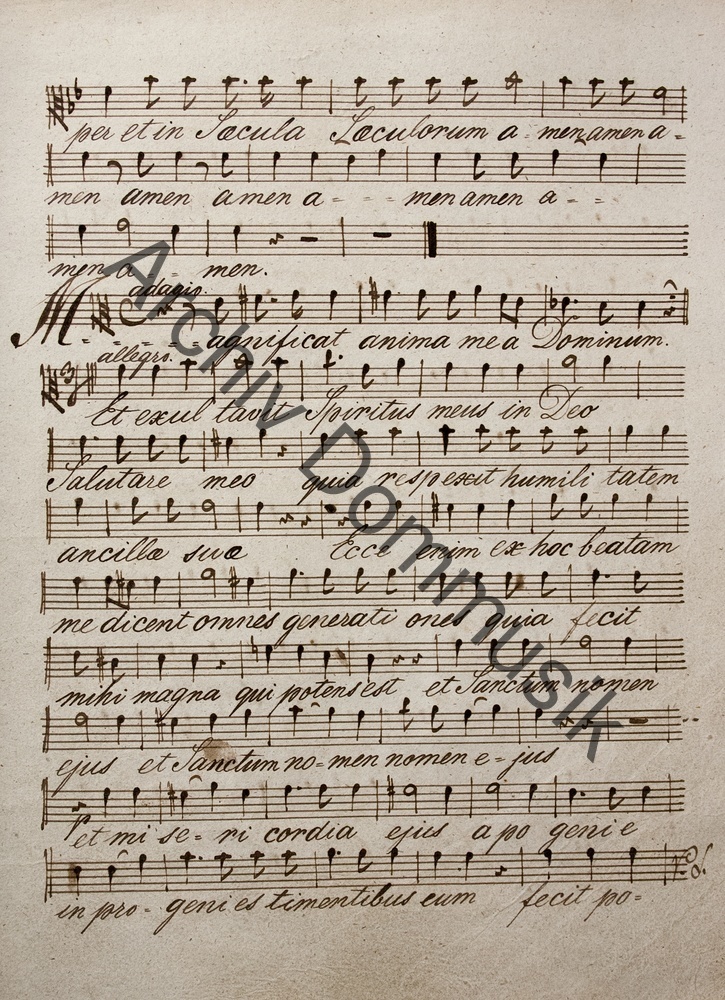 per et in Sæcula Sæculorum a- men amen a-
men amen amen a - - - men amen a - -
men a - men.
adagio.
M - - - - agnificat anima mea Dominum.
allegro.
Et exultavit Spiritus meus in Deo
Salutare meo quia respexit humili tatem
ancillæ suæ Ecce enim ex hoc beatam
me dicent omnes generati ones quia fecit
mihi magna qui potens est et Sanctum nomen
ejus et Sanctum no=men nomen e=jus
et mi se= ri cordia ejus a po genie
in pro= geni es timentibus eum fecit po=
Archiv Dommusik